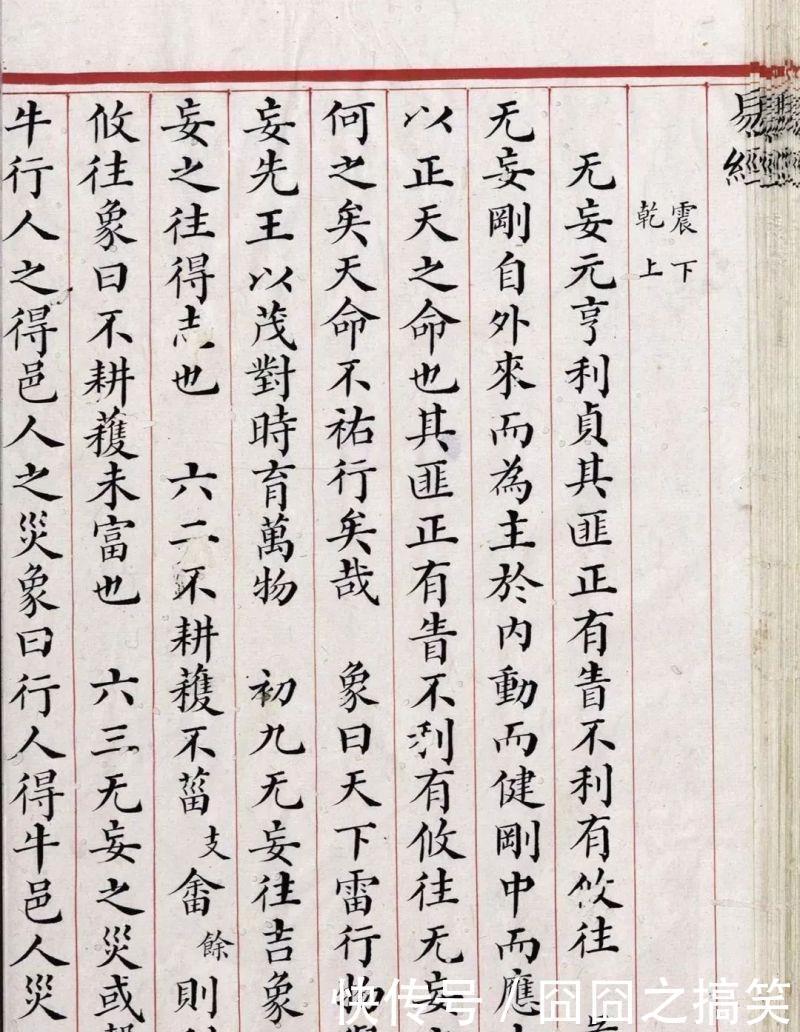 易經
震下
乾上
无妄元亨利貞其匪正有眚不利有攸往
无妄剛自外來而為主於内動而健剛中而應
以正天之命也其匪正有眚不利有攸往无妄
何之矣天命不祐行矣哉　象曰天下雷行物
妄先王以茂對時育萬物　初九无妄往吉象
妄之往得志也　六二不耕穫不菑支畬餘則
攸往象曰不耕穫未富也　六三无妄之災或
牛行人之得邑人之災象曰行人得牛邑人災
快传号/囧囧之搞笑